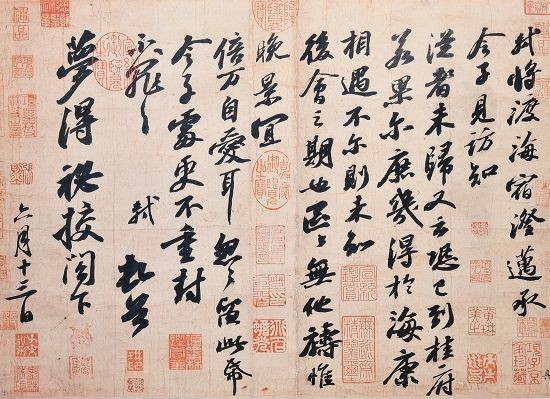 軾將渡海宿澄邁承
令子見訪知
從者未歸又云恐已到桂府
若果尒庶幾得於海康
相遇不尒則未知
後會之期也區〻無他禱惟
晚景宜
倍万自愛耳忽〻留此帋
令子處更不重封
不罪〻
軾頓首
夢得祕校閣下
六月十三日